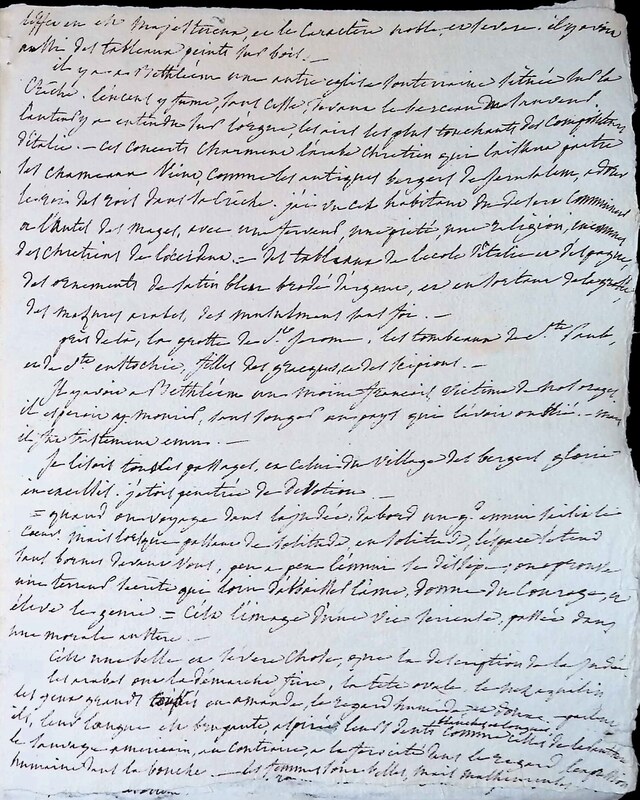 est majestueux, et le caractère noble, et severe. il y avoit
aussi des tableaux peints sur bois. —
il y a a Bethléem une autre eglise souterraine sur la
Crêche. l'encens y fume, sans cesse, devant le berceau du sauveur.
l'auteur y a entendu sur l'orgue, les airs les plus touchants des Compositeurs
d'italie. — ces concerts charment l'arabe chretien qui laissant paitre
les chameaux vient comme les antiques bergers de Bethléem, adorer
le roi des rois dans la Crêche. j'ai vu cet habitant du desert Communier
a l'autel des mages, avec une ferveur, une piété, une religion, inconnues
des chretiens de l'occident = des tableaux de l'ecole d'italie et d'espagne,
des ornements de satin bleu brodé d'argent, et en sortant de la grotte,
des masures arabes, des musulmans sans foi. —
près de là, la grotte de St Jerome, les tombeaux de Ste Paule,
et de Ste eustochie, filles des gracques, et des scipions. —
Il y avoit a Bethléem un moine françois, victime de nos orages,
il esperoit y mourir, sans songer au pays qui l'avoit oublié. — mais
il fut tristement emu. —
Je lisois tous les passages, et celui du village des bergers gloria
in excelsis. j'etois penetrée de devotion. —
= quand on voyage dans la judée, d'abord un gd ennui saisit le
Coeur. mais lorsque passant de solitude en solitude, l'espace s'etend
sans bornes devant vous, peu a peu l'ennui se dissipe; on eprouve
une terreur secrete qui loin d'abaisser l'ame, donne du Courage, et
éleve le genie. = C'est l'image d'une vie passée dans
une morale austere. —
C'est une belle et severe chose, que la description de la judée
les arabes ont la démarche fiere, la tête ovale, le nez aquilin
les yeux grands coupés en amande, le regard humide et doux. —
ils, leur langue est bruyante, aspirée leurs dents blanches comme celles de
le sauvage americain, au contraire, a la ferocité dans le regard, l'expression
humaine dans la bouche. — les femmes sont belles, mais